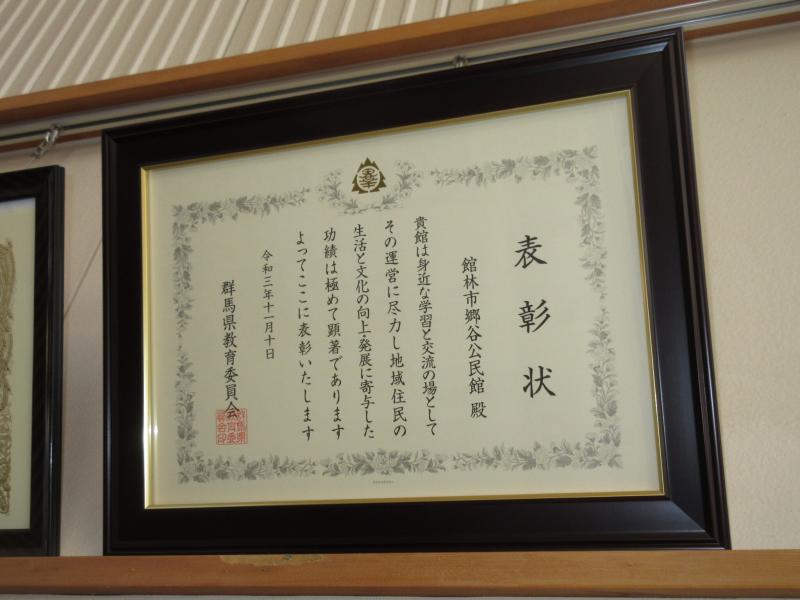 表彰状
館林市郷谷公民館 殿
貴館は身近な学習と交流の場として
その運営に尽力し地域住民の
生活と文化の向上・発展に寄与した
功績は極めて顕著であります
よってここに表彰いたします
令和三年十一月十日
群馬県教育委員会